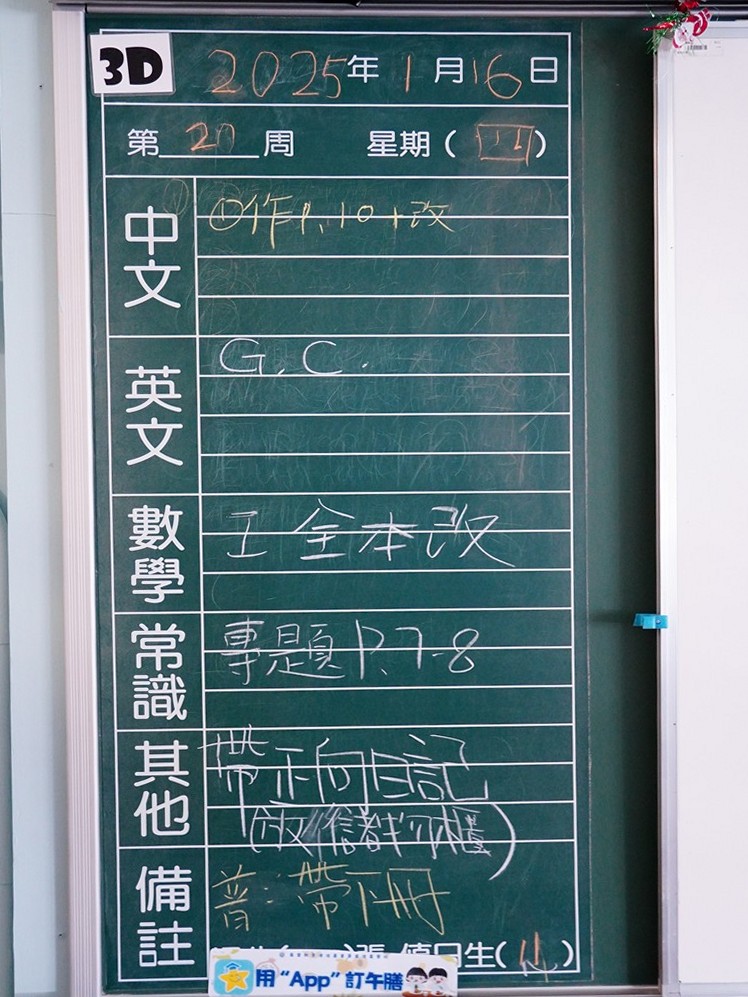 3D
2025年1月16日
第20周 星期(四)
中文
①作P.10+改
英文
G.C.
數學
工全本改
常識
專題P.7-8
其他
帶正向日記
備註
普:帶下冊
張 值日生( )
用“App”訂午膳